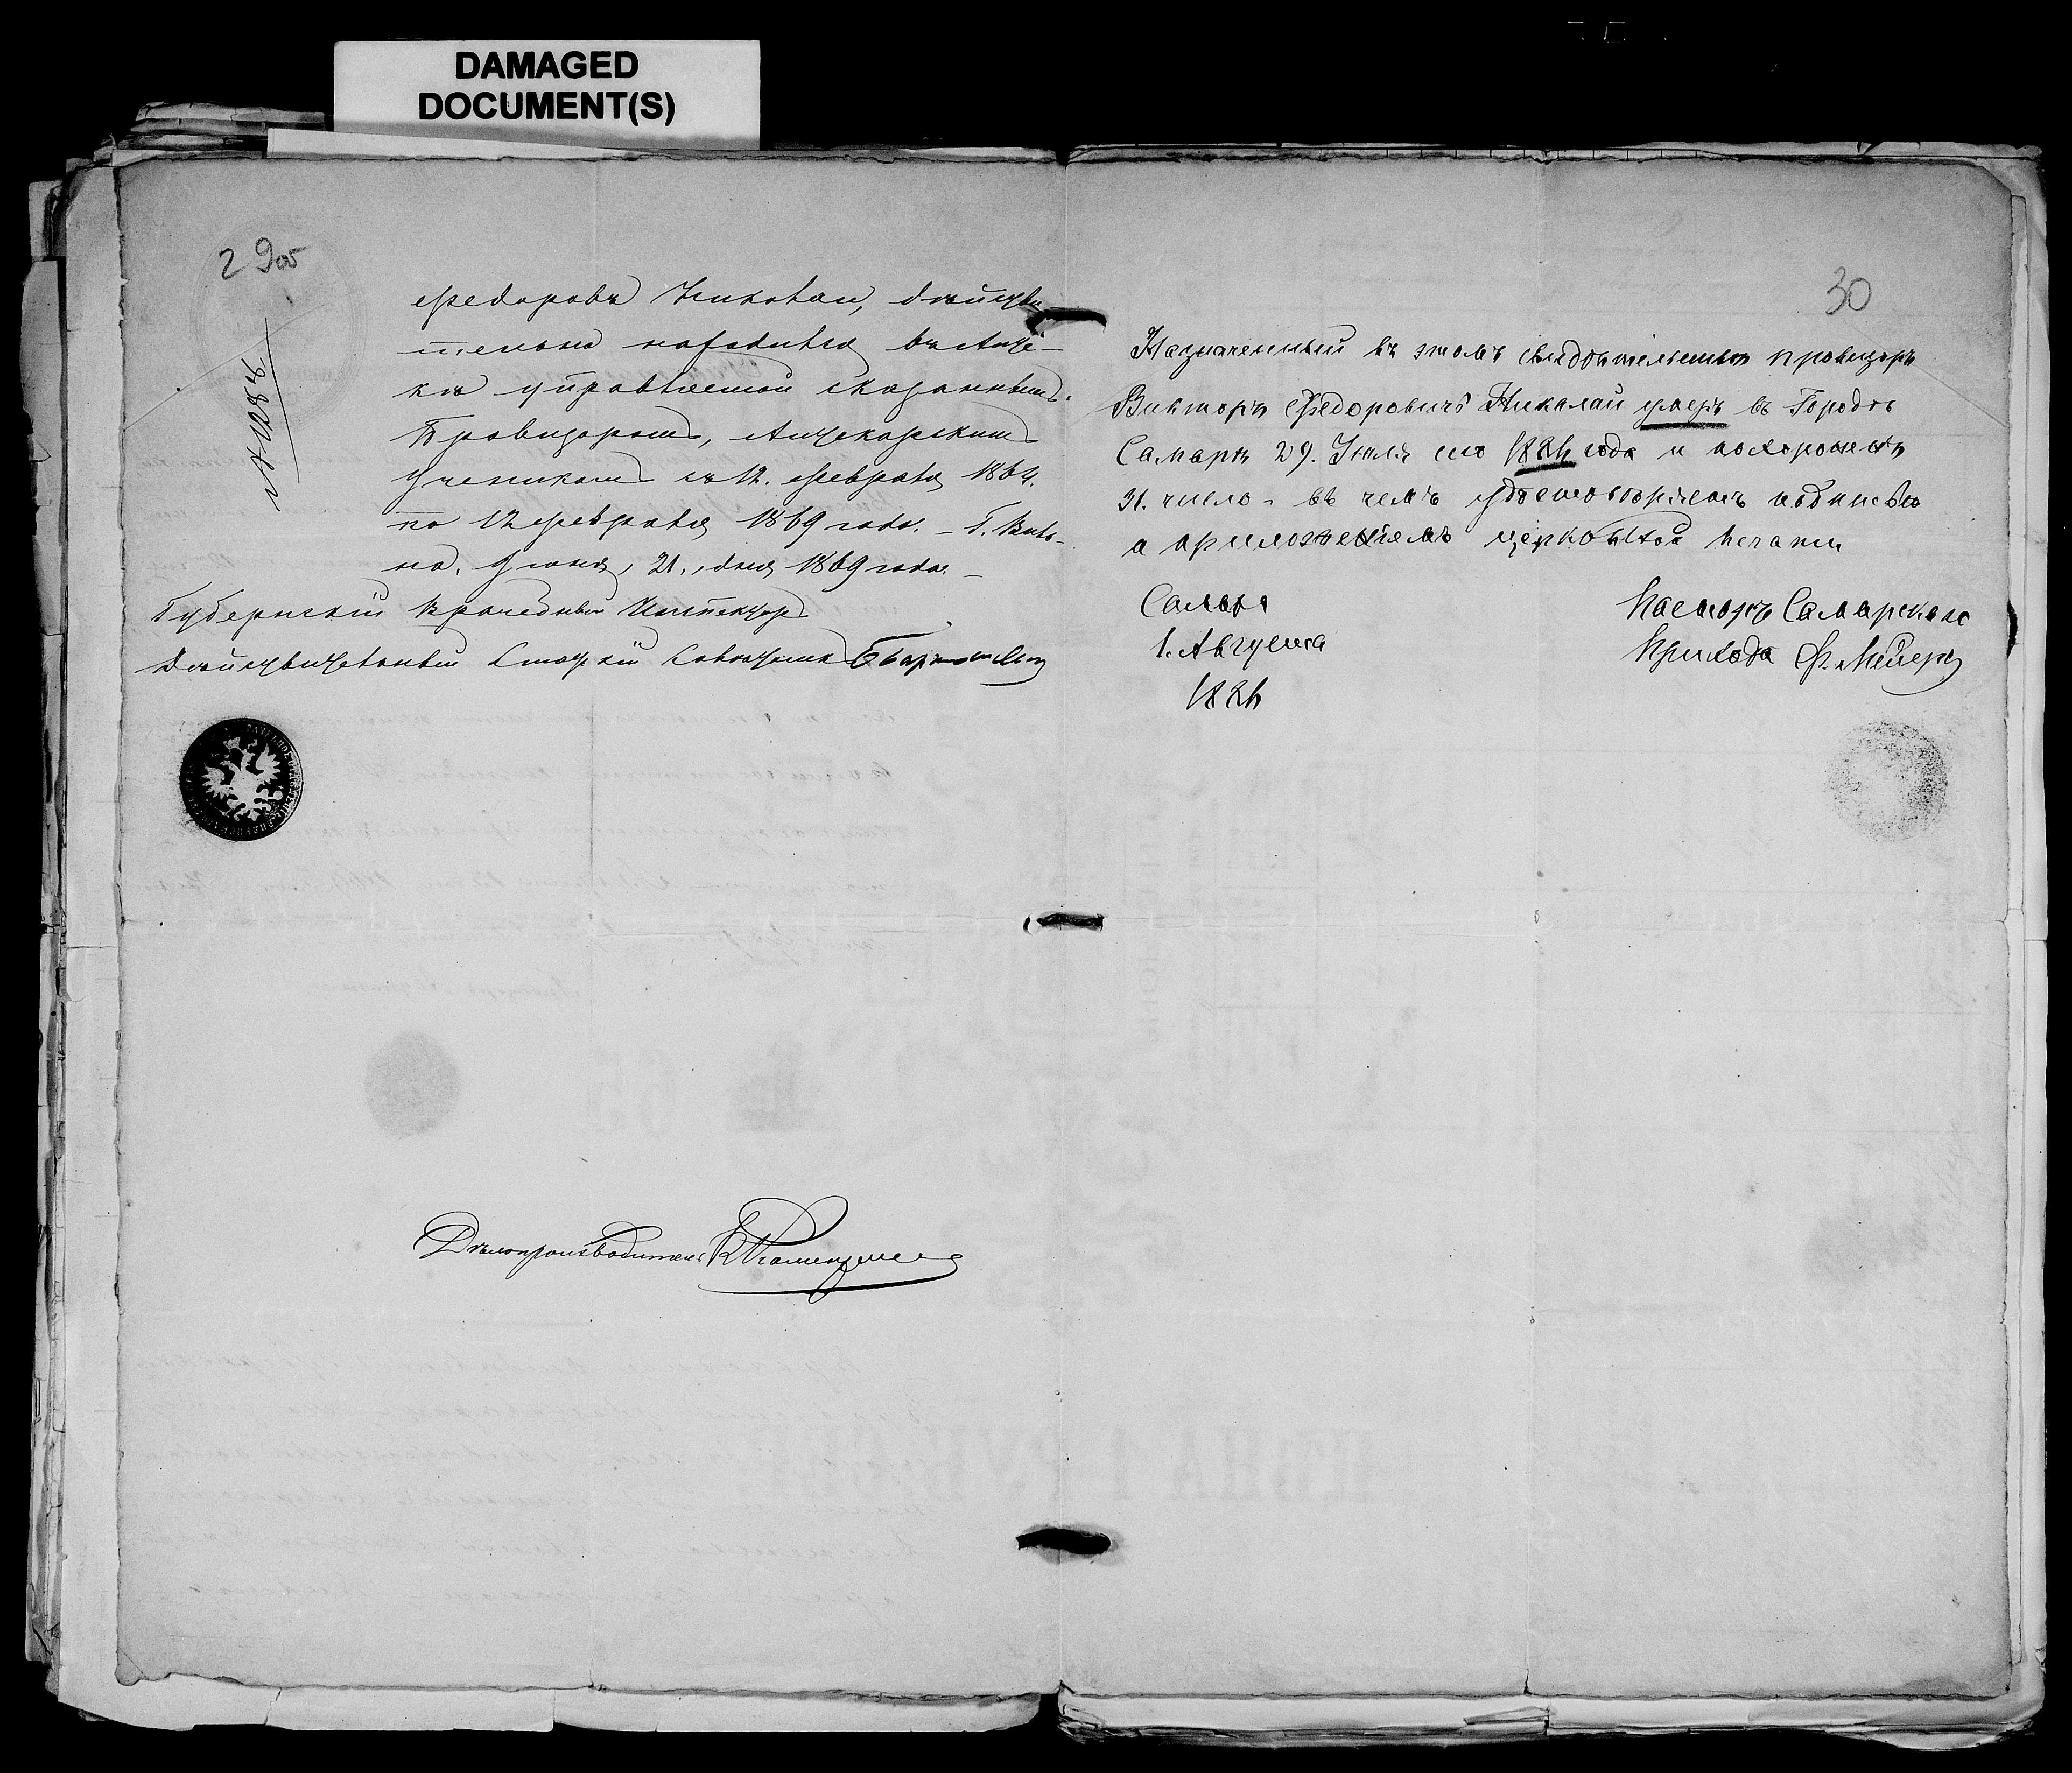 DAMAGED
DOCUMENT(S)
29об
№ 1288
Федоровъ Николаи, дѣйстви
тельно находился въ Апте-
кѣ управляемой сказаннымъ
Провизоромъ, Аптекарскимъ
ученикомъ съ 12. Февраля 1864.
по 12 Февраля 1869 года. – Г. Виль-
на. Іюня, 21., дня 1869 года. –
Губернскій Врачебный Инспекторъ
Дѣйствительный Статскій Совѣтникъ
Дѣлопроизводитель
30
Назначенный въ этомъ свидѣтельствѣ провизоръ
Викторъ Федоровичъ Николаи умеръ въ Городѣ
Самарѣ 29. Іюля сего года и похороненъ
31. число – въ чемъ удостовѣряемъ подписью
а приложеніемъ церковной печати
Самара
1. Августа
Пасторъ Самарскаго
Прихода Ф. Мейеръ